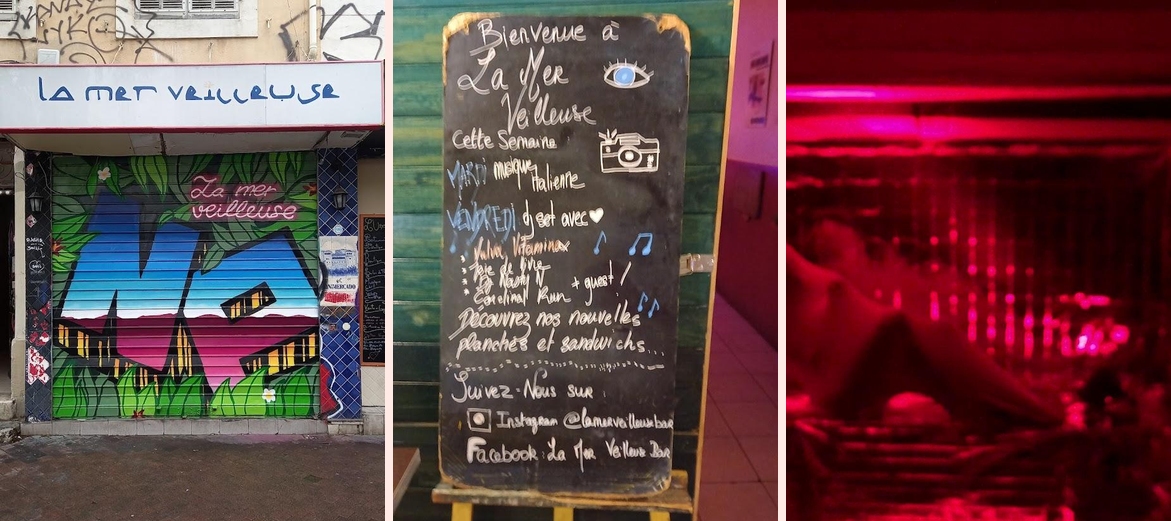 la mer veilleuse
La mer
veilleuse
Bienvenue à
La Mer
Veilleuse
Cette Semaine
MARDI musique
Italienne
VENDREDI dj set avec
Vulva Vitaminax
Joie de livre
+ guest
Cardinal Run
Découvrez nos nouvelles
planches et sandwichs...
Suivez-Nous sur
Instagram @lamerveilleusebar
Facebook: La Mer Veilleuse Bar